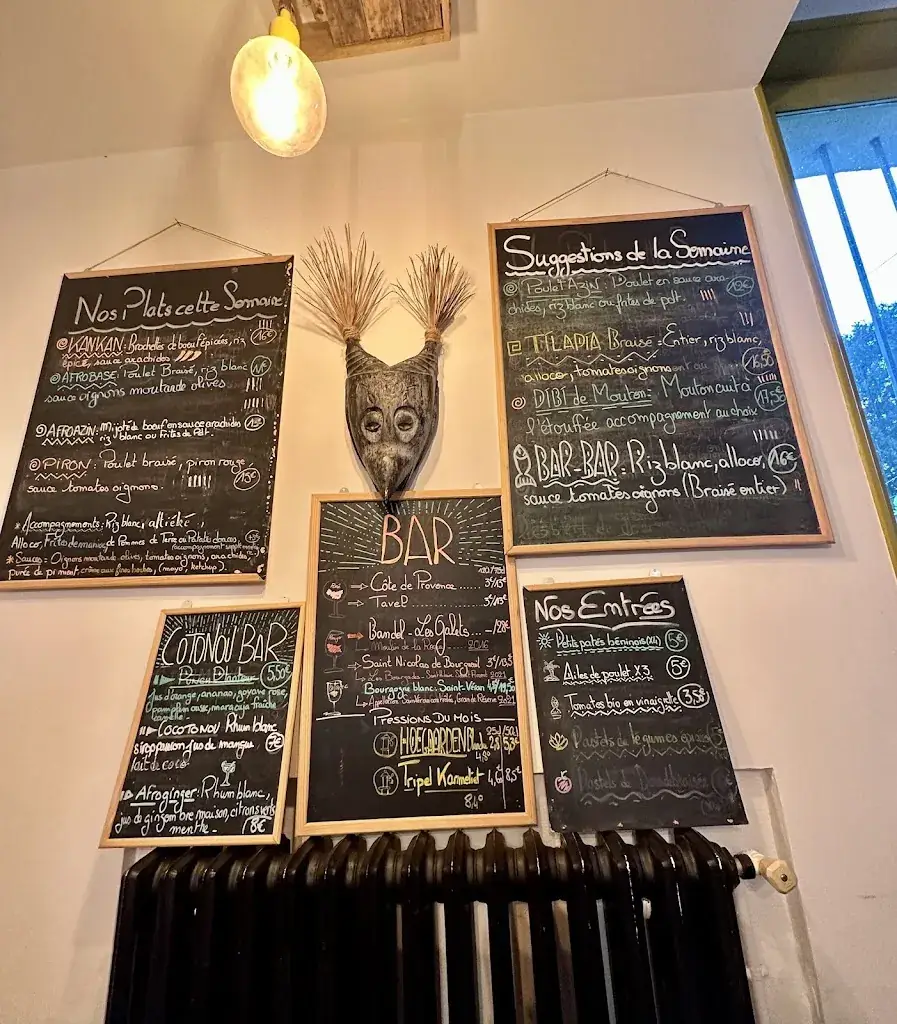 Nos Plats cette Semaine
KANKAN: Brochettes de boeuf épicées, riz
épicé, sauce arachides
16€
AFROBASE: Poulet Braisé, riz blanc
sauce oignons moutarde olives
AFROAZIN: Mijoté de boeuf en sauce arachides
riz blanc ou Frites de Pat.
PIRON: Poulet braisé, piron rouge,
sauce tomates oignons
15€
* Accompagnements: Riz blanc, attiéké,
Alloco, Frites de manioc de Pommes de Terre ou Patate douces
* Sauces: Oignons moutarde olives, tomates oignons, arachides,
purée de piment, crème aux fines herbes, (mayo, ketchup).
Suggestions de la Semaine
Poulet AZIN: Poulet en sauce ara-
chides, riz blanc ou frites de pat.
TILAPIA Braisé: Entier, riz blanc,
alloco, tomates oignons
16,50
DIBI de Mouton: Mouton cuit à
l'étouffée accompagnement au choix
17,50
BAR-BAR: Riz blanc, alloco,
sauce tomates oignons (Braisé entier)
16€
BAR
Côte de Provence
Tavel
Bandol - Les Galets
Moulin de la Roque 2016
Saint Nicolas de Bourgueil
2021
Bourgogne blanc, Saint-Véran
2021
Pressions Du Mois
25cl/50cl
HOEGAARDEN
4,9°
Tripel Karmeliet 8,5€
8,4°
COTONOU BAR
5,50
Jus d'orange, ananas, goyave rose,
pamplemousse, maracuja fraîche
COCOTONOU Rhum blanc
sirop passion, jus de mangue
lait de coco
7€
Afroginger: Rhum blanc,
jus de gingembre maison, citrons verts
menthe.
8€
Nos Entrées
Petits patés béninois (x4) 5€
Ailes de poulet x3 5€
Tomates bio en vinaigrette 3,5€
Pastels de légumes
Pastels de